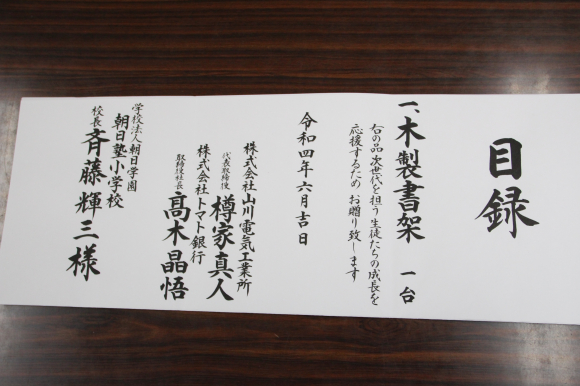 目録
一、木製書架 一台
右の品 次世代を担う生徒たちの成長を
応援するため お贈り致します
令和四年六月吉日
株式会社山川電気工業所
代表取締役 樽家真人
株式会社トマト銀行
取締役社長 髙木晶悟
学校法人朝日学園
朝日塾小学校
校長 斉藤輝三様